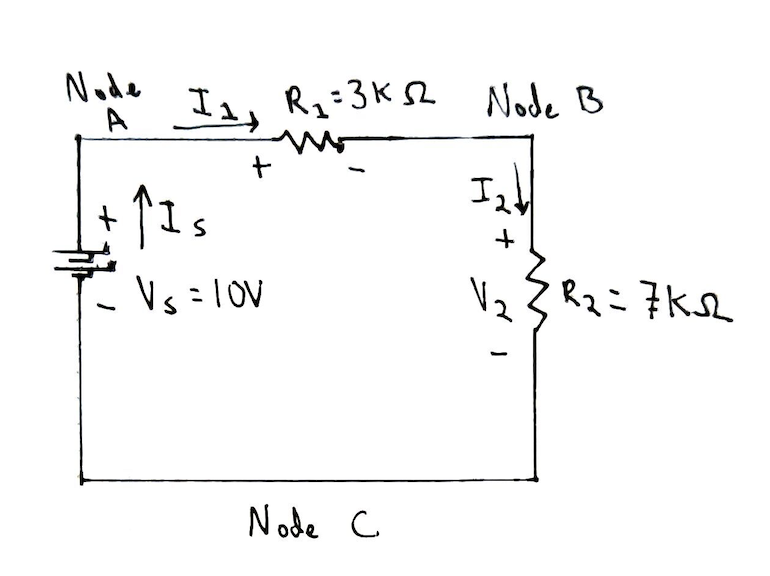 Node A
I₁ →
R₁=3KΩ
Node B
+ -
I₂ ↓
+ ↑ Is
- Vs=10V
+
V₂
-
R₂=7KΩ
Node C